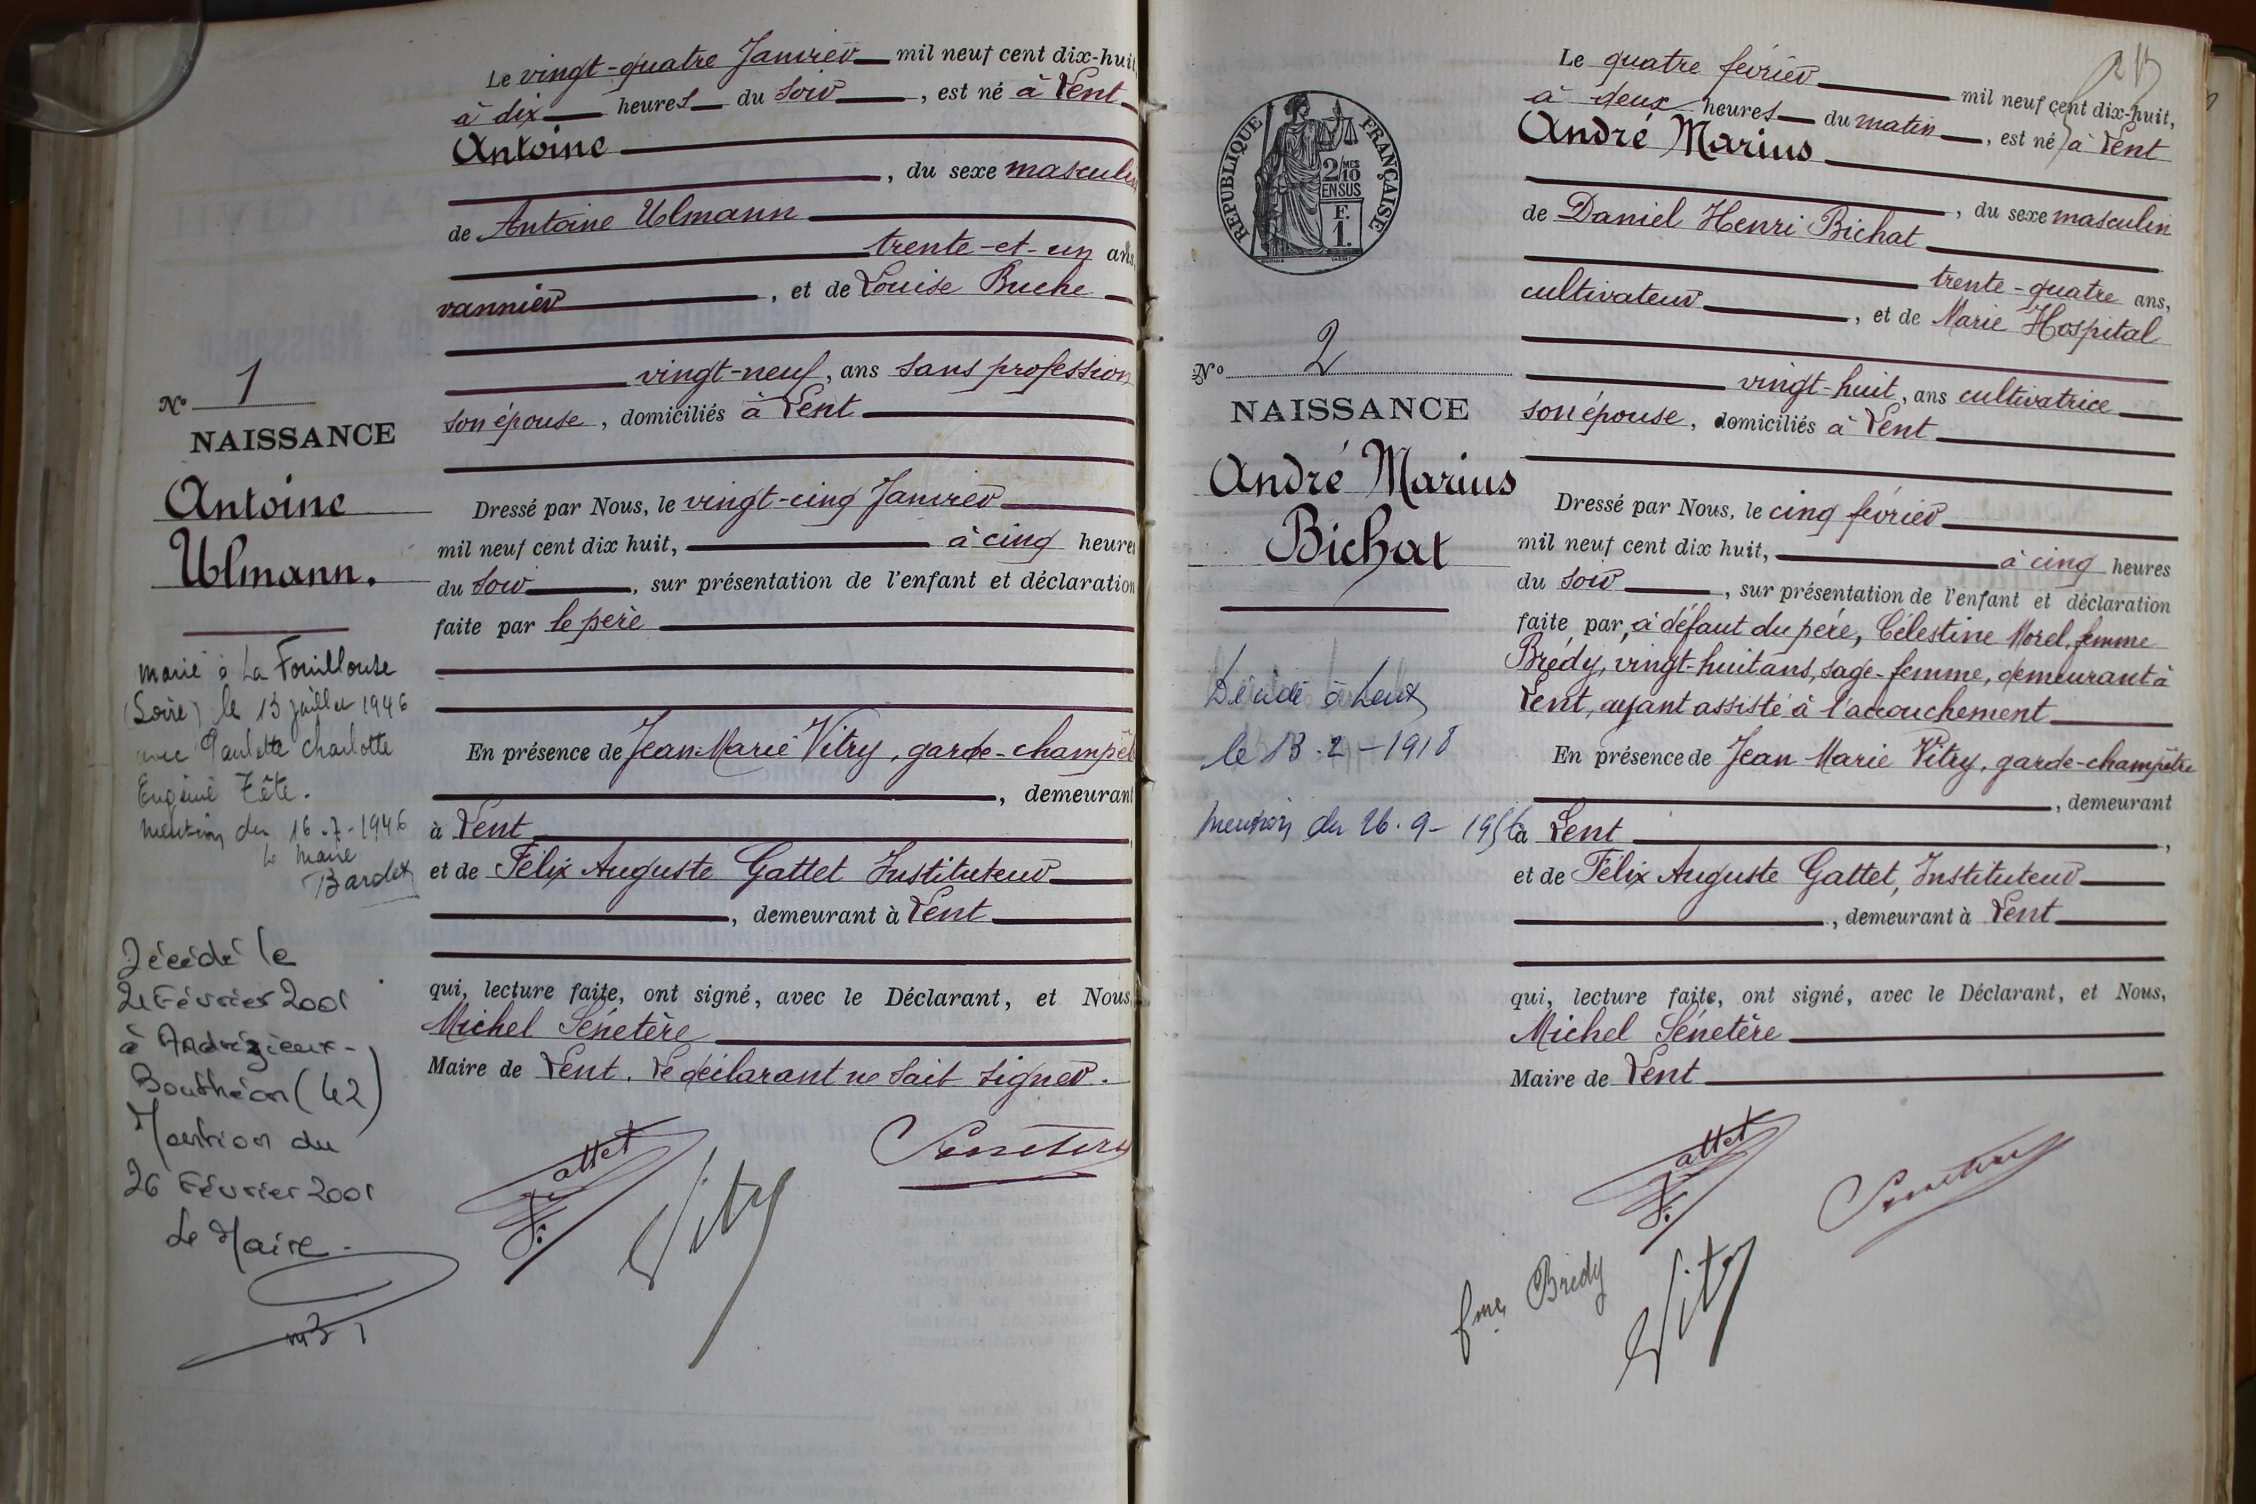 Le vingt-quatre Janvier mil neuf cent dix-huit
à dix heures du soir, est né à Lent
Antoine
, du sexe masculin
de Antoine Ulmann
trente-et-un ans,
vannier, et de Louise Buche
vingt-neuf, ans sans profession
son épouse, domiciliés à Lent
Dressé par Nous, le vingt-cinq Janvier
mil neuf cent dix huit, à cinq heures
du soir, sur présentation de l'enfant et déclaration
faite par le père
En présence de Jean-Marie Vitry, garde-champêt
, demeurant
à Lent
et de Félix Auguste Gattet Instituteur
, demeurant à Lent
qui, lecture faite, ont signé, avec le Déclarant, et Nous,
Michel Sénetère
Maire de Lent. Le déclarant ne sait signer.
F. Gattet
Vitry
Senetère
No 1
NAISSANCE
Antoine
Ulmann.
marié à La Fouillouse
(Loire) le 13 juillet 1946
avec Paulette Charlotte
Eugénie Tête.
mention du 16-7-1946
le maire
Bardet
Décédé le
21 Février 2001
à Andrézieux-
Bouthéon (42)
Mention du
26 Février 2001
Le Maire
Le quatre février mil neuf cent dix-huit,
à deux heures du matin, est né à Lent
André Marius
, du sexe masculin
de Daniel Henri Bichat
trente-quatre ans,
cultivateur, et de Marie Hospital
vingt-huit, ans cultivatrice
son épouse, domiciliés à Lent
Dressé par Nous, le cinq février
mil neuf cent dix huit, à cinq heures
du soir, sur présentation de l'enfant et déclaration
faite par, à défaut du père, Célestine Morel, femme
Brédy, vingt-huit ans, sage-femme, demeurant à
Lent, ayant assisté à l'accouchement
En présence de Jean Marie Vitry, garde-champêtre
, demeurant
à Lent
et de Félix Auguste Gattet, Instituteur
, demeurant à Lent
qui, lecture faite, ont signé, avec le Déclarant, et Nous,
Michel Sénetère
Maire de Lent
F. Gattet
Senetère
fme Brédy
Vitry
RÉPUBLIQUE FRANÇAISE
2/10 MES
EN SUS
F.
1.
No 2
NAISSANCE
André Marius
Bichat
Décédé à Lent
le 13-2-1918
mention du 26-9-